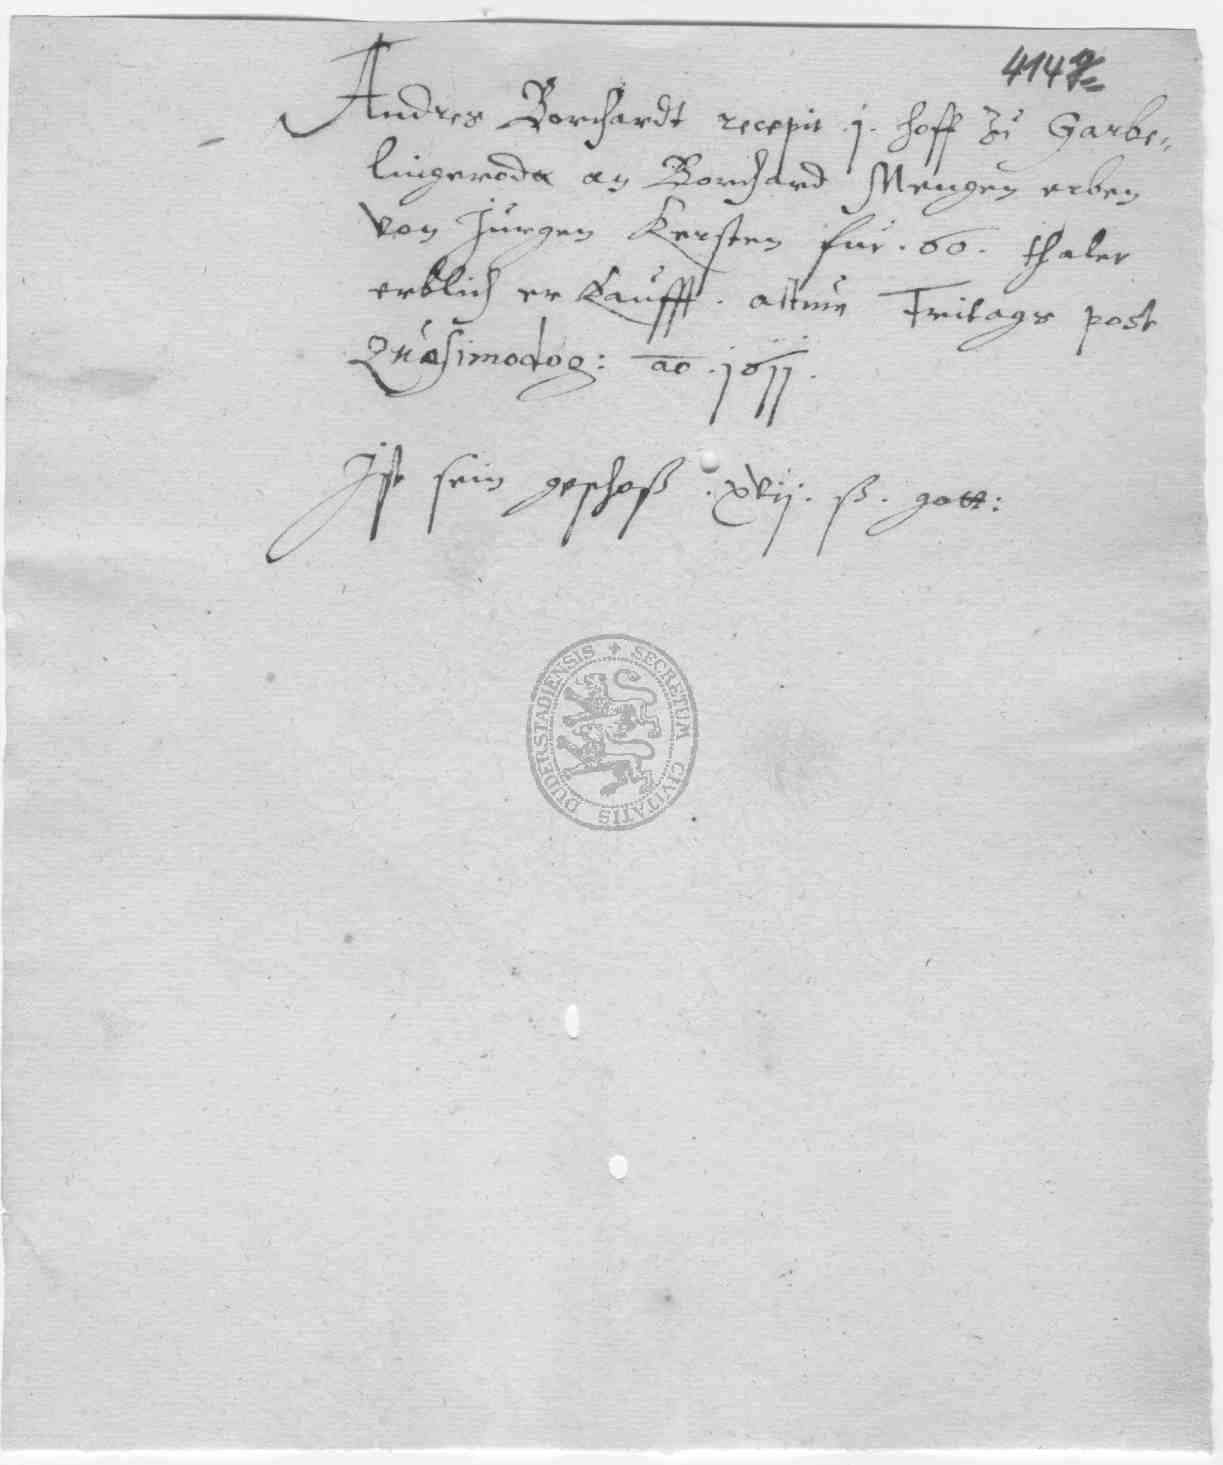 414
Andres Borchardt recepit .j. hoff zu Garbe-
lingeroda an Borchard Mengen erben
von Jurgen Kersten fur .60. thaler
erblich er kaufft. actum Fritags post
Quasimodog: ao .1611.
Ist sein geschoß .xvij. ß. gott:
SECRETUM CIVITATIS DUDERSTADIENSIS